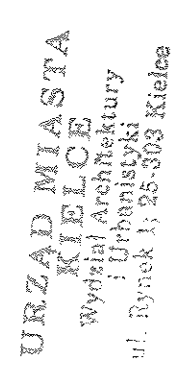 URZĄD MIASTA
KIELCE
Wydział Architektury
i Urbanistyki
ul. Rynek 1, 25-303 Kielce